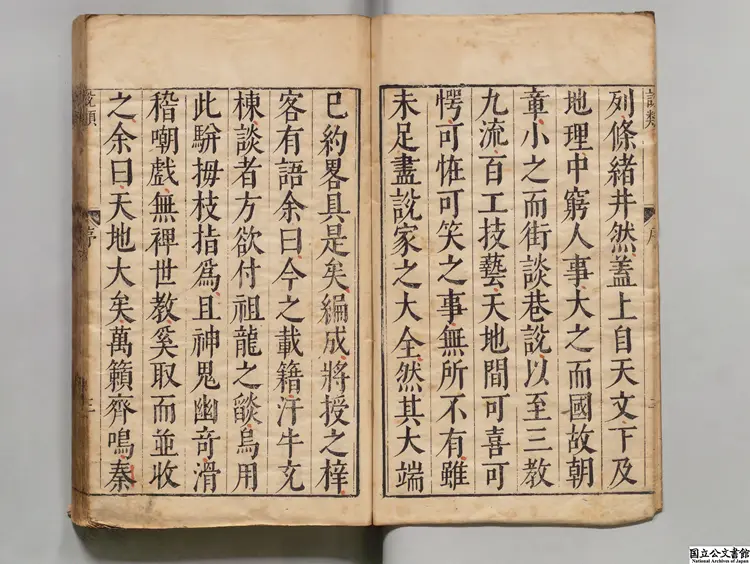 列條緒井然蓋上自天文下及
地理中窮人事大之而國故朝
童小之而街談巷說以至三教
九流百工技藝天地間可喜可
愕可恠可笑之事無所不有雖
未足盡說家之大全然其大端
已約畧具是矣編成將授之梓
客有語余曰今之載籍汗牛充
棟談者方欲付祖龍之燄烏用
此駢拇枝指爲且神鬼幽奇滑
稽嘲戲無裨世教奚取而並收
之余曰天地大矣萬籟齊鳴秦
說類
序
三
国立公文書館
National Archives of Japan